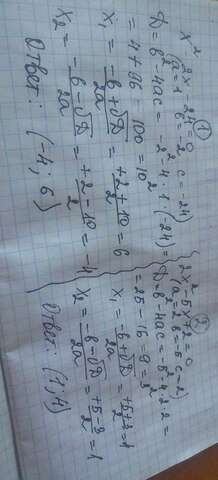 ①
x² 2x - 24 = 0
(a = 1 b = -2 c = -24)
D = b² - 4ac = -2² - 4·1·(24) =
= 4 + 96 = 100 = 10²
x₁ = -b + √D / 2a = +2 + 10 / 2 = 6
x₂ = -b - √D / 2a = +2 - 10 / 2 = -4
Ответ: (-4; 6)
②
2x² - 5x + 2 = 0
(a = 2 b = -5 c = 2)
D = b² - 4ac = -5 - 4·2·2 =
= 25 - 16 = 9 = 3²
x₁ = -b + √D / 2a = +5 + 3 / 2 = 4
x₂ = -b - √D / 2a = +5 - 3 / 2 = 1
Ответ: (1; 4)